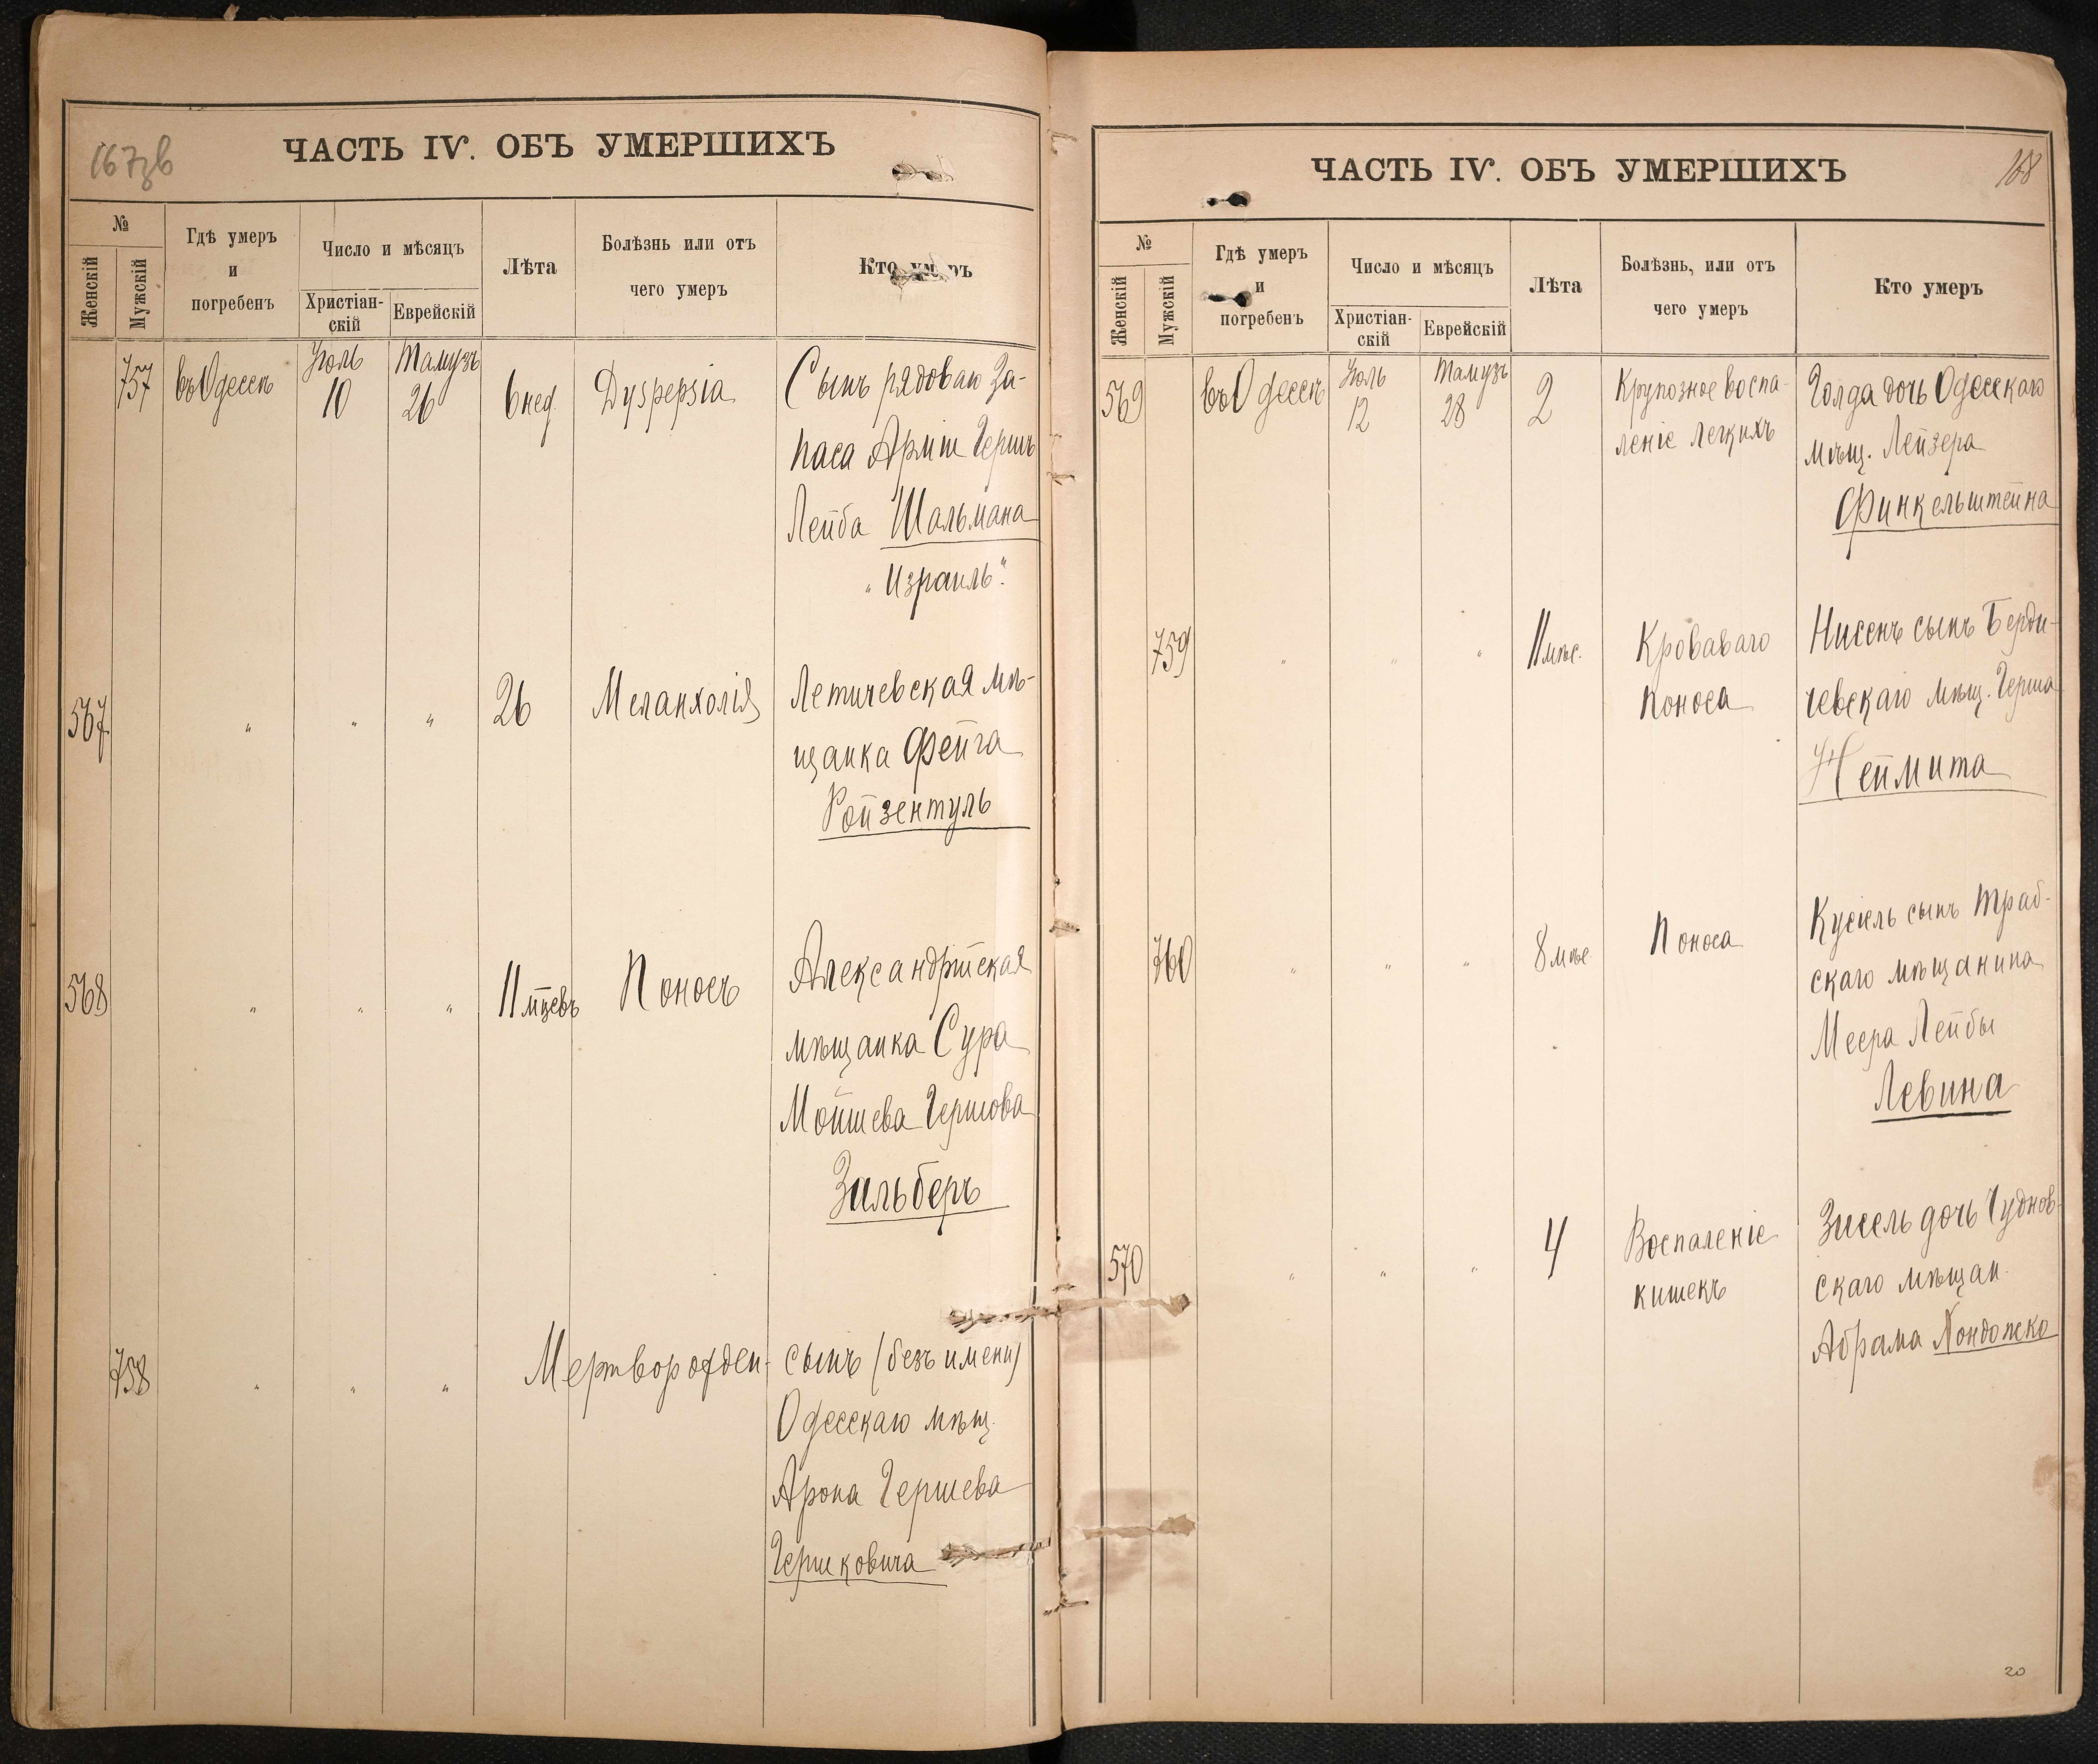 167зв
ЧАСТЬ IV. ОБЪ УМЕРШИХЪ
№
Женскій
Мужскій
Гдѣ умеръ
и
погребенъ
Число и мѣсяцъ
Христіан-
скій
Еврейскій
Лѣта
Болѣзнь или отъ
чего умеръ
Кто умеръ
757 въ Одессѣ Іюль 10 Тамузъ 26 6 нед. Dyspepsia Сынъ рядоваго За-
паса Арміи Гершъ
Лейба Шальмана
"Израиль".
567 " " " 26 Меланхолія Летичевская мѣ-
щанка Фейга
Ройзентуль
568 " " " 11 мѣсцевъ Поносъ Александрійская
мѣщанка Сура
Мойшева Гершова
Зильберъ
758 " " " Мертворожден- сынъ (безъ имени)
Одесскаго мѣщ.
Арона Гершева
Гершковича
ЧАСТЬ IV. ОБЪ УМЕРШИХЪ
168
№
Женскій
Мужскій
Гдѣ умеръ
и
погребенъ
Число и мѣсяцъ
Христіан-
скій
Еврейскій
Лѣта
Болѣзнь, или отъ
чего умеръ
Кто умеръ
569 въ Одессѣ Іюль 12 Тамузъ 28 2 Крупозное воспа- Голда дочь Одесскаго
леніе легкихъ мѣщ. Лейзера
Финкельштейна
759 " " " 11 мѣс. Кроваваго Нисенъ сынъ Берди-
поноса чевскаго мѣщ. Герша
Неймита
760 " " " 8 мѣс Поноса Кусіель сынъ Траб-
скаго мѣщанина
Меера Лейбы
Левина
570 " " " 4 Воспаленіе Зисель дочь Чуднов-
кишекъ скаго мѣщан.
Абрама Хондожко
20